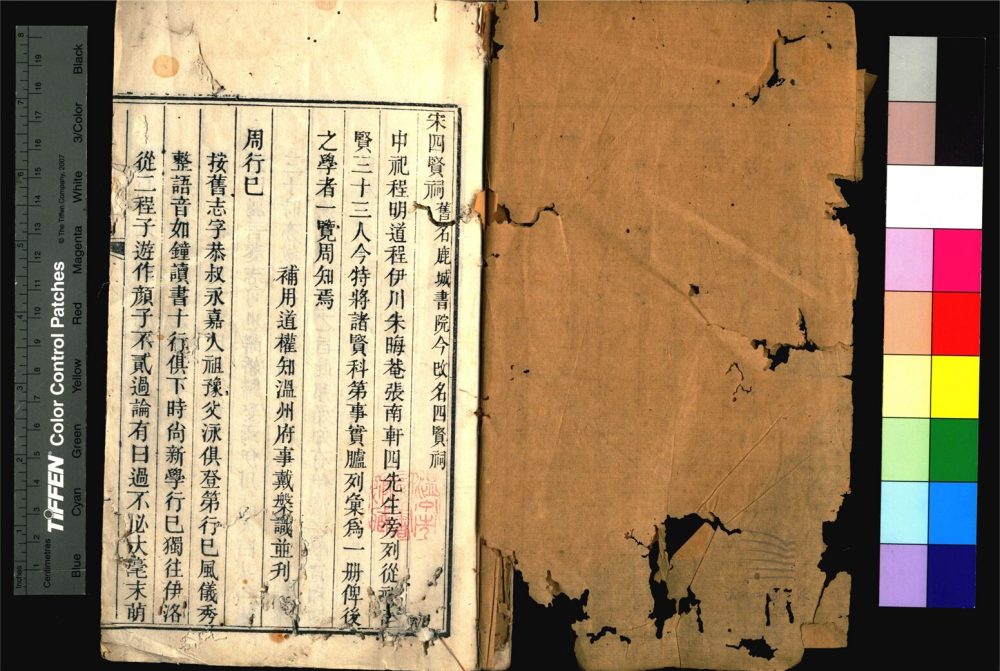 宋四賢祠舊名鹿城書院今改名四賢祠
中祀程明道程伊川朱晦菴張南軒四先生旁列從祀
賢三十三人今特將諸賢科第事實臚列彙爲一册俾後
之學者一覽周知焉
補用道權知溫州府事戴槃識並刊
周行已
按舊志字恭叔永嘉人祖豫父泳俱登第行已風儀秀
整語音如鐘讀書十行俱下時尚新學行已獨往伊洛
從二程子遊作顏子不貳過論有曰過不必大毫末萌
Inches
Centimetres
TIFFEN® Color Control Patches
© The Tiffen Company, 2007
Blue
Cyan
Green
Yellow
Red
Magenta
White
3/Color
Black
1 2 3 4 5 6 7 8
1 2 3 4 5 6 7 8 9 10 11 12 13 14 15 16 17 18 19